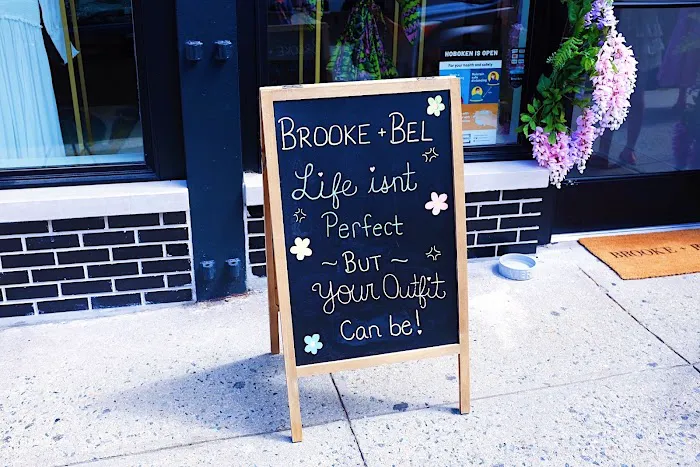 BROOKE + BEL
Life isnt
Perfect
~ BUT ~
Your Outfit
Can be!
HOBOKEN IS OPEN
For your health and safety
BROOKE +